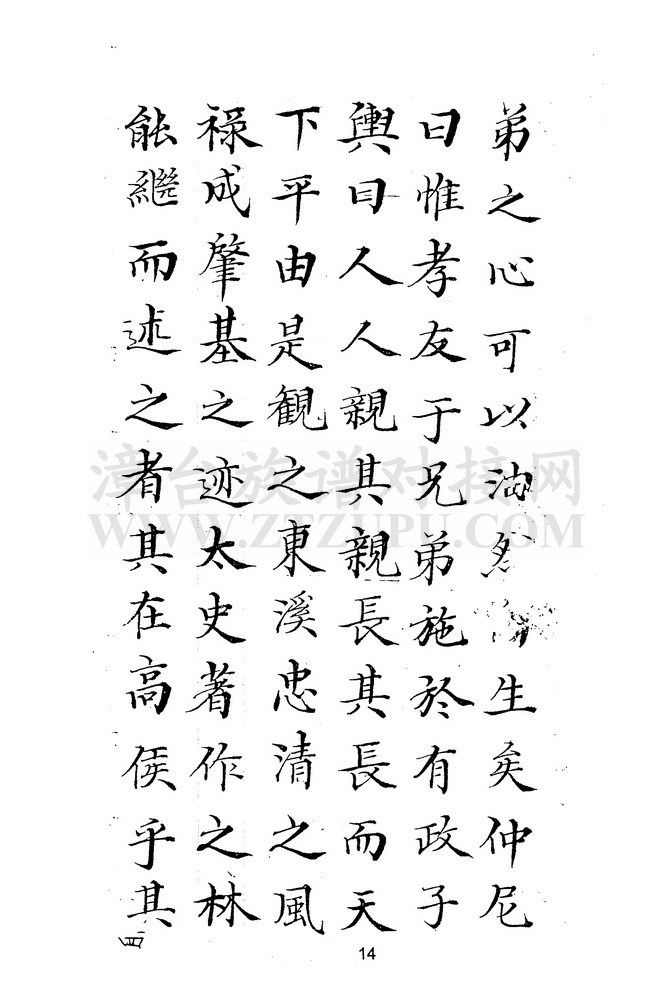 弟之心可以油然 生矣仲尼
曰惟孝友于兄弟施於有政子
輿曰人人親其親長其長而天
下平由是觀之東溪忠清之風
祿成肇基之迹太史著作之林
能繼而述之者其在高侯乎其
四
14
漳台族谱对接网
WWW.ZTZUPU.COM